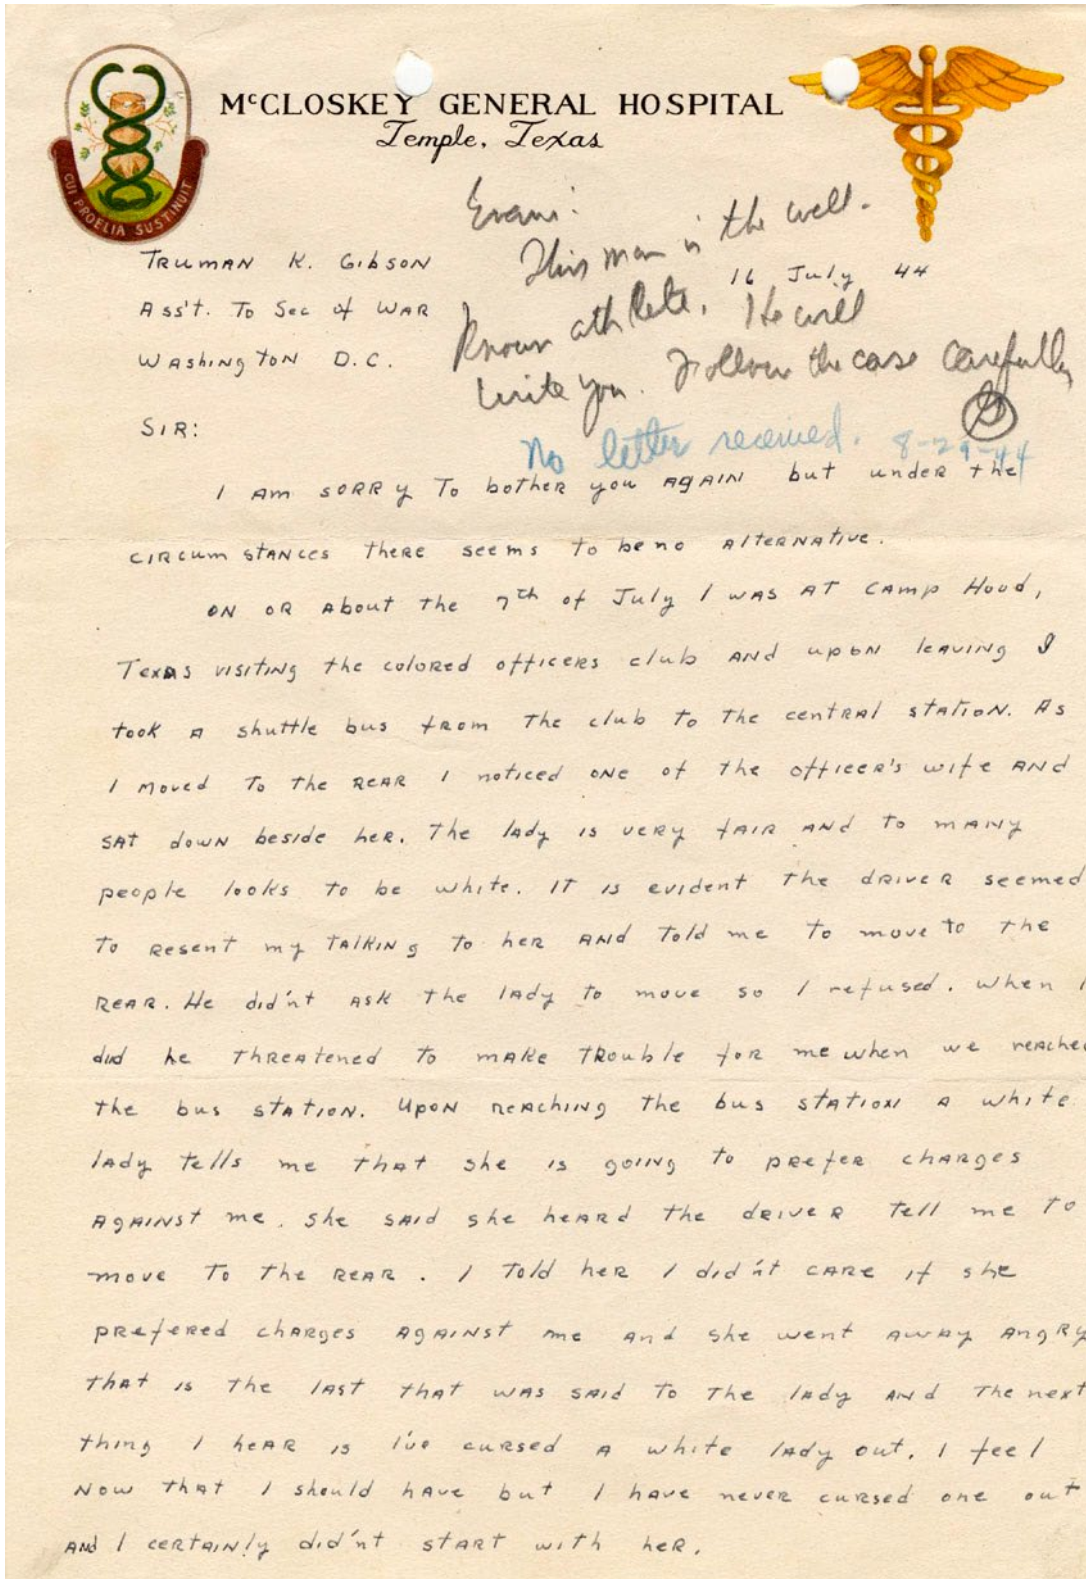 McCLOSKEY GENERAL HOSPITAL
Temple, Texas
CUI PROELIA SUSTINUIT
Evans:
This man is the well.
known athlete. He will
write you. Follow the case carefully
G
No letter received. 8-29-44
TRUMAN K. GIBSON
16 July 44
ASS't. To Sec of WAR
WAShINGTON D.C.
SIR:
I AM SORRY To bother you AGAIN but under the
CIRCUM STANCES there seems to be no AlteRNAtive.
ON OR About the 7th of July I WAS AT CAMP Hood,
Texas visiting the colored officers club AND upon leaving I
took A shuttle bus from the club to the central station. As
I moved To the REAR I noticed one of the officer's wife AND
SAT down beside her. The lady is very fair AND to MANY
people looks to be white. IT is evident the driver seemed
To Resent my TAlkiNg to her AND told me to move to the
REAR. He did'nt ASK the lady to move so I refused. When I
did he threatened to make trouble for me when we reached
the bus station. Upon reaching the bus station A white
lady tells me that she is going to prefer charges
AGAINST me. She SAID she heard the driver tell me to
move To the REAR. I told her I did'nt care if she
prefered charges AGAINST me and she went AWAY ANGRY
THAT is the last that was said to the lady AND the next
thing I hear is I've cursed A white lady out. I feel
Now that I should have but I have never cursed one out
AND I certainly did'nt start with her.